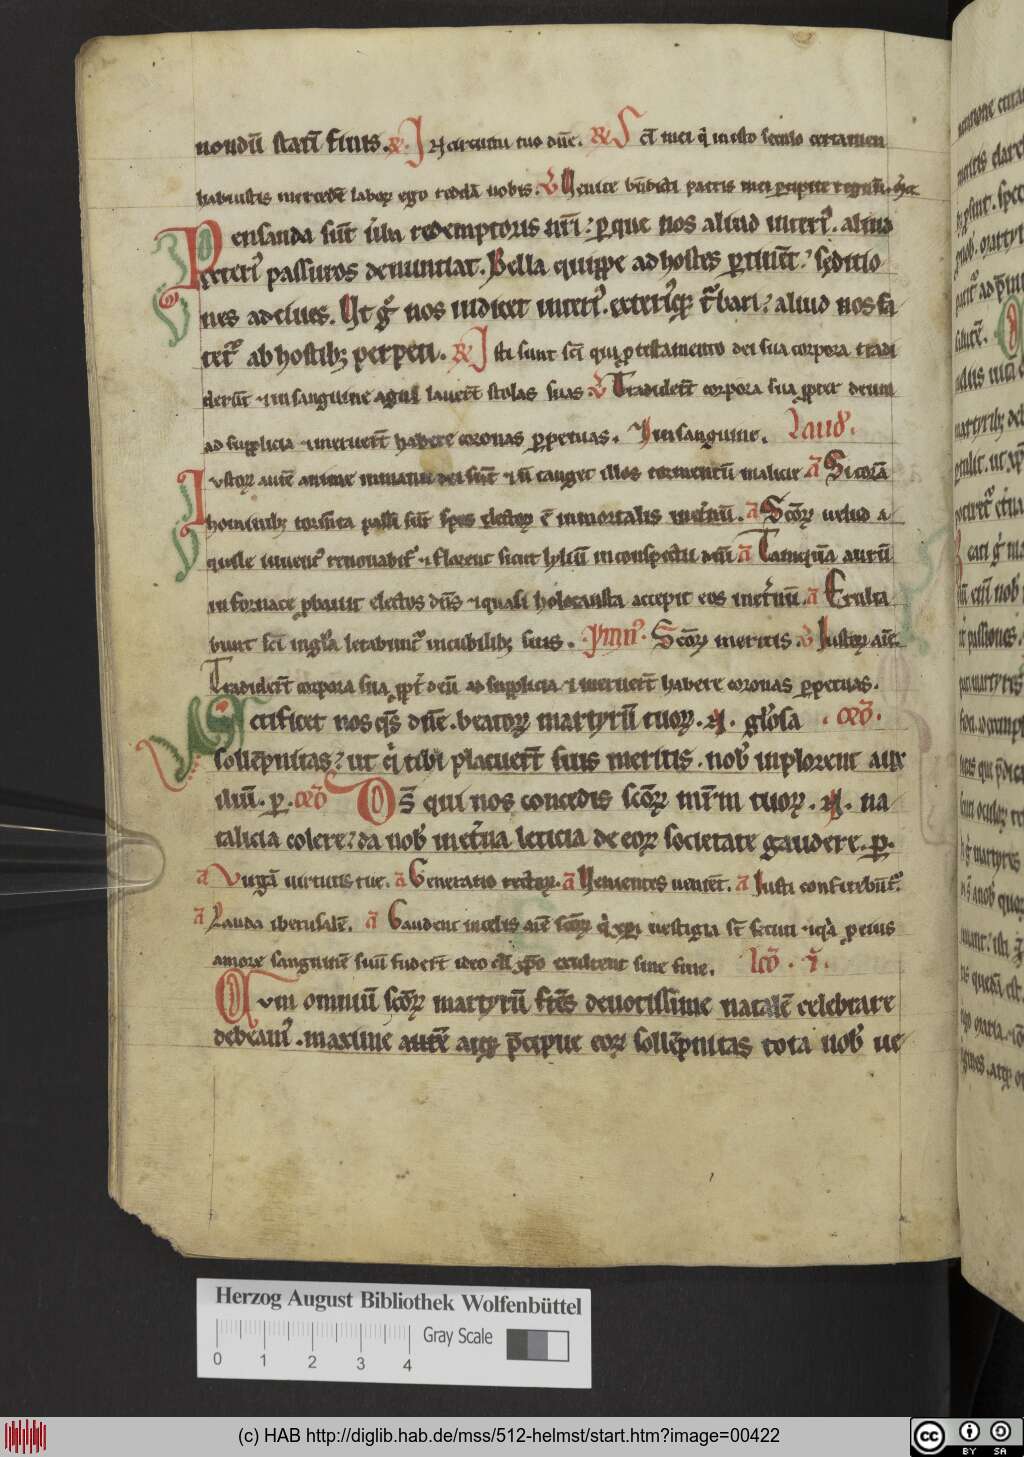 nondū statī finis. R. In circuitu tuo dn̄e. R. Sc̄i mei q̇ in isto seculo certamen
habuistis mercedē labor̨ ego reddā uobis. V Uenite bn̄dicti patris mei percipite regnū.
Pensanda sūt uerba redemptoris nr̄i: ꝑque nos aliud interi᷒. aliud
exteri᷒ passuros denuntiat. Bella quippe ad hostes ꝑtinēt: sęditio
nes ad ciues. Ut gͦ nos indicet interi᷒. exteri᷒q; t᷒bari: aliud nos fa
tet᷒ ab hostib; perpeti. R. Isti sunt sc̄i qui ꝓ testamento dei sua corpora tradi
derūt ⁊ in sanguine agni lauert̄ stolas suas. V Tradidert̄ corpora sua ꝓpter deum
ad supplicia ⁊ meruert̄ habere coronas ꝑpetuas. In sanguine. Laud᷒.
Iustor̨ autē anime in manu dei sūt ⁊ n̄ tanget illos tormentū malicie ā Si corā
hominib; tormēta passi sūt spes elector̨ ē inmortalis in et̄nū. ā Scōr̨ uelud a
quile iuuent᷒ renouabit᷒ ⁊ florent sicut lyliū in conspectu dn̄i ā Tamquā aurū
in fornace ꝓbauit electos dn̄s ⁊ quasi holocausta accepit eos in et̄nū. ā Exulta
bunt sc̄i in gl̄a letabunt᷒ in cubilib; suis. Ymn᷒. Scōr̨ meritis. V Iustor̨ aīe.
Tradidert̄ corpora sua ꝓpt̄ deū ad supplicia ⁊ meruert̄ habere coronas ꝑpetuas.
Letificet nos qs̄ dn̄e. beator̨ martyrū tuor̨. N. gl̄osa . Orō.
sollēpnitas: ut q̇ tibi placuert̄ suis meritis. nob᷒ inplorent aux
iliū. ꝑ. Orō Ds̄ qui nos concedis scōr̨ mr̄m tuor̨. N. na
talicia colere: da nob᷒ in et̄na leticia de eor̨ societate gaudere. ꝑ.
ā Uirgā uirtutis tue. ā Generatio rector̨. ā Uenientes uenient. ā Iusti confitebūt᷒.
ā Lauda iherusalē. ā Gaudent in celis aīe scōr̨ q̇ xp̄i uestigia st̄ secuti ⁊ q̇a ꝓ eius
amore sanguinē suū fudert̄ ideo cū xp̄o exultent sine fine. lc̄o . I.
Cum omniū scōr̨ martyrū fr̄s deuotissime natalē celebrare
debeam᷒. maxime autē atq; p̄cipue eor̨ sollēpnitas tota nob᷒ ue
Herzog August Bibliothek Wolfenbüttel
0 1 2 3 4 Gray Scale
(c) HAB http://diglib.hab.de/mss/512-helmst/start.htm?image=00422
cc BY SA